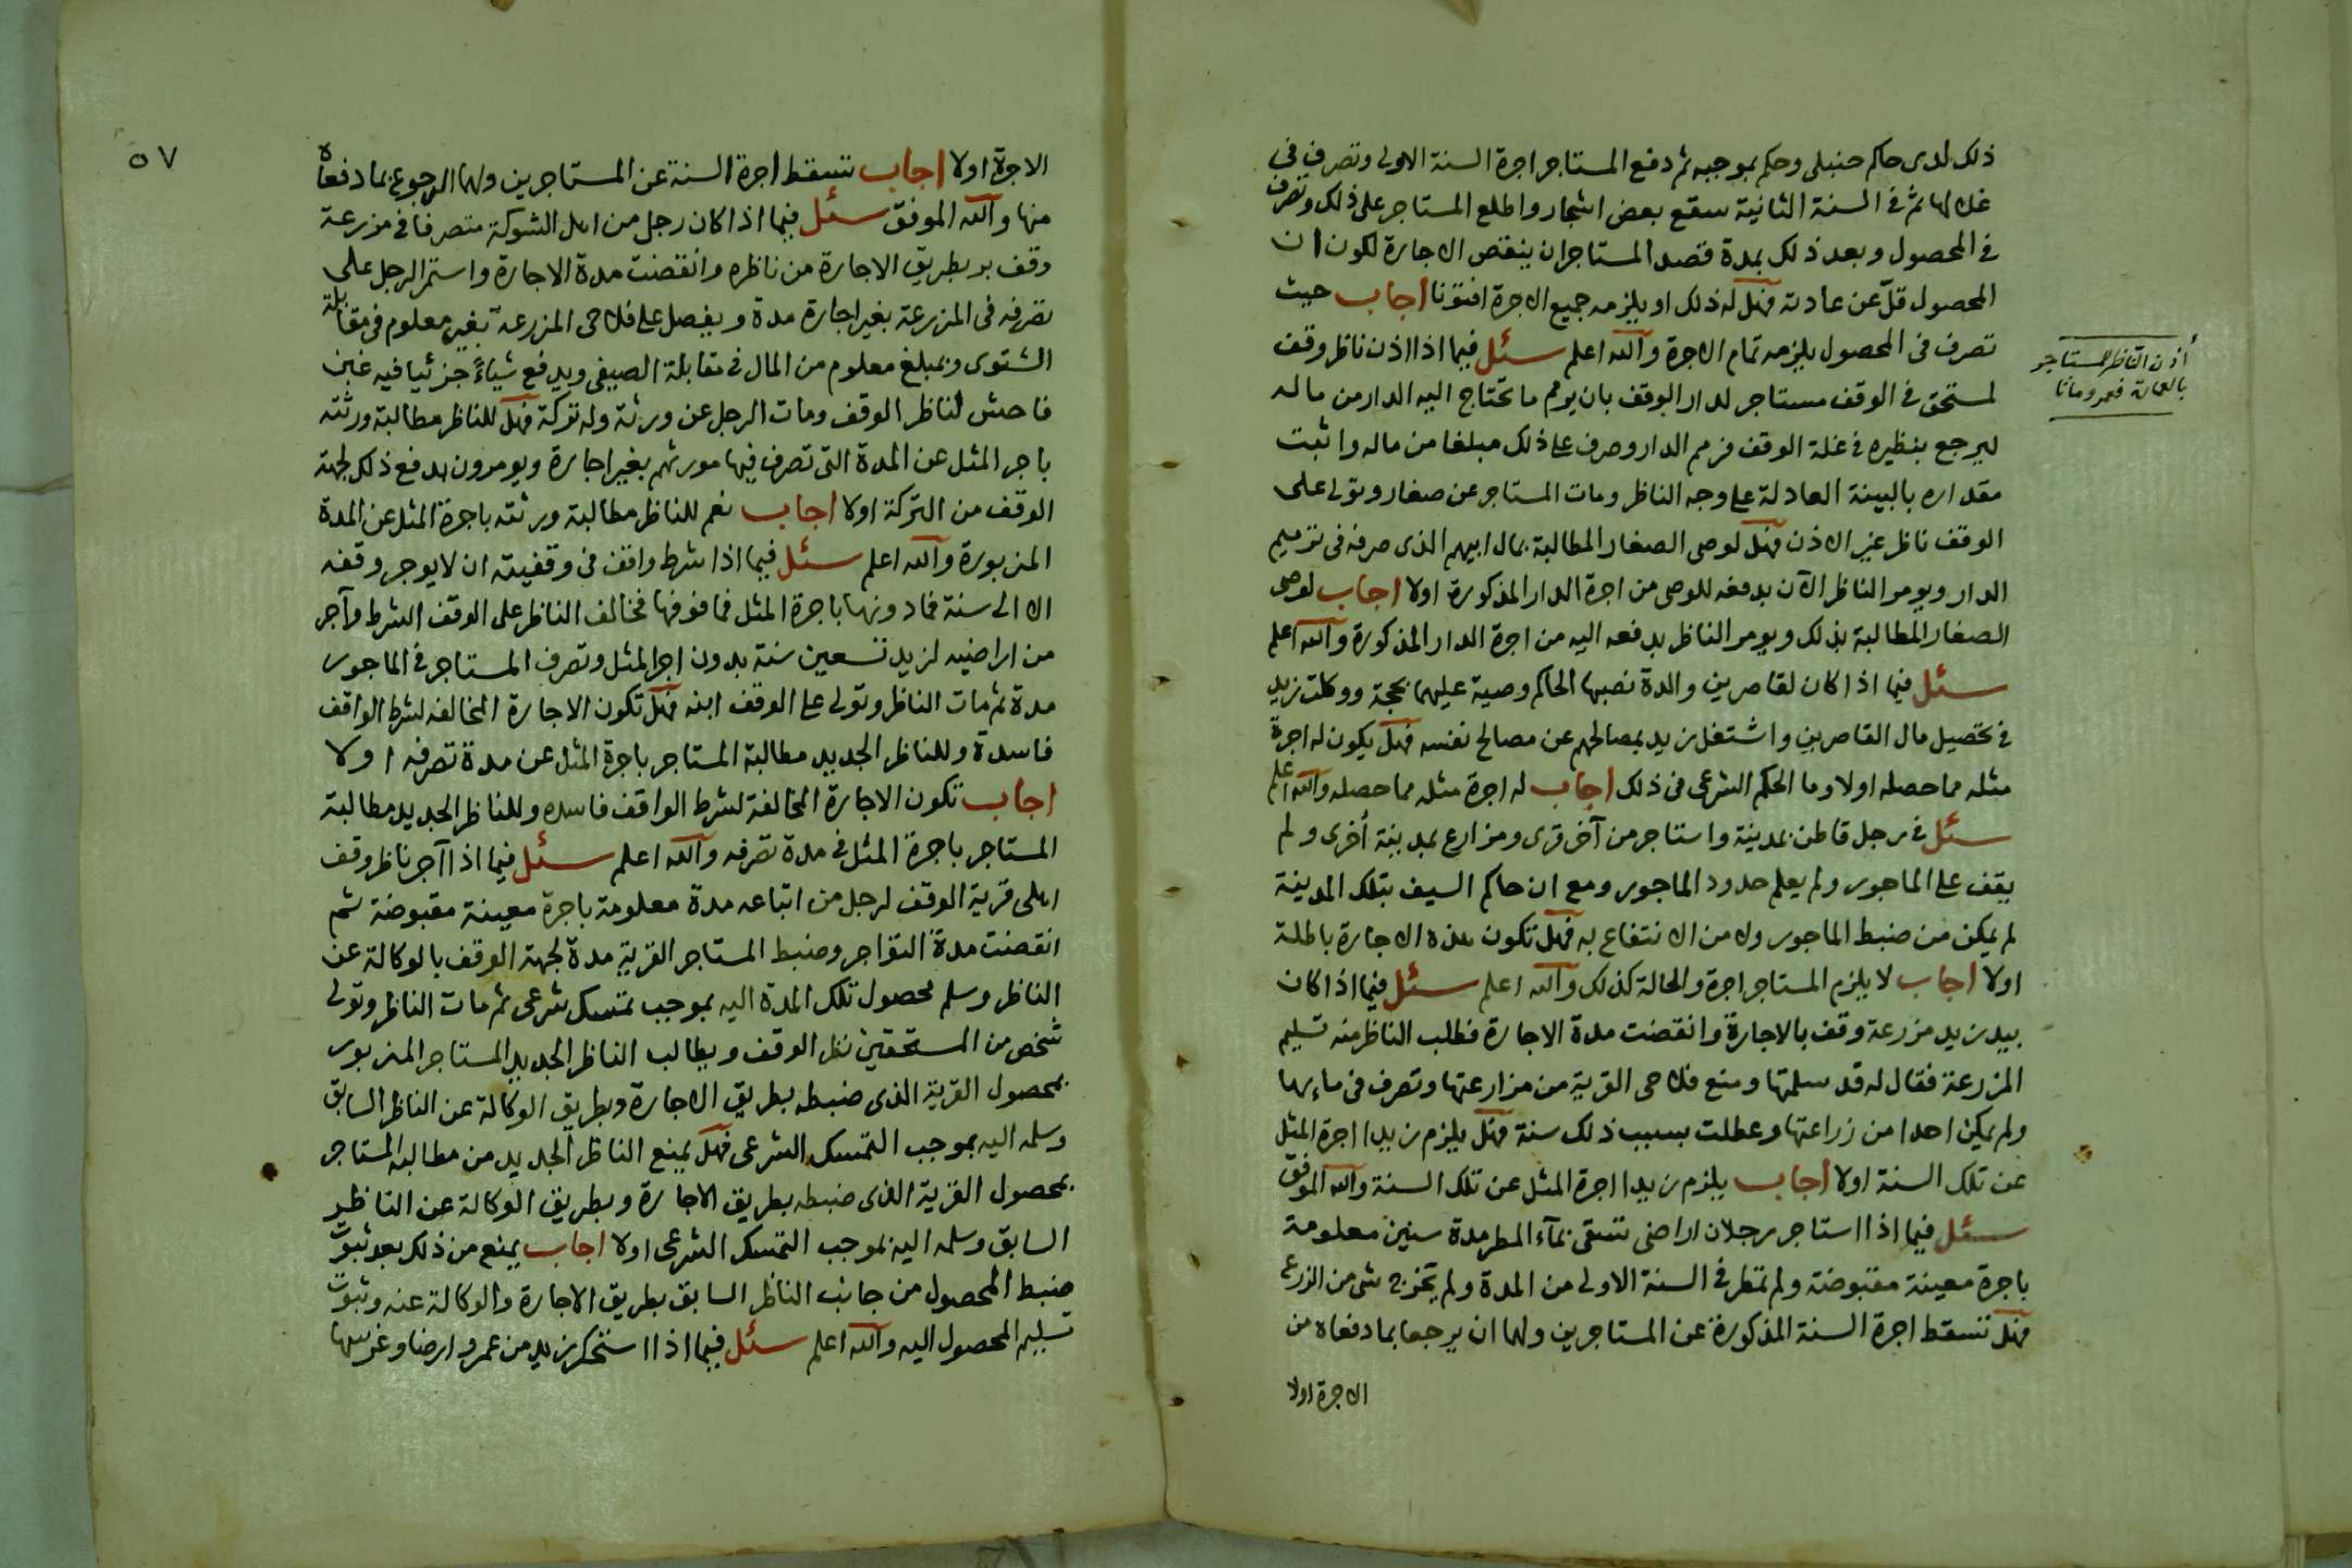 ذلك لدى حاكم حنبلى وحكم بموجبه ثم دفع المستاجر اجرة السنة الاولى وتصرف فى
غلالها ثم فى السنة الثانية سقع بعض اشجار واطلع المستاجر على ذلك وتصرف
فى المحصول وبعد ذلك بمدة قصد المستاجر ان ينقص الاجارة لكون ان
المحصول قلّ عن عادته فهل له ذلك او يلزمه جميع الاجرة افتونا اجاب حيث
تصرف فى المحصول يلزمه تمام الاجرة والله اعلم سئل فيما اذا اذن ناظر وقف
لمستحق فى الوقف مستاجر لدار الوقف بان يرمم ما تحتاج اليه الدار من ماله
ليرجع بنظيره فى غلة الوقف فرمم الدار وصرف على ذلك مبلغا من ماله واثبت
مقداره بالبينة العادلة على وجه الناظر ومات المستاجر عن صغار وتولى على
الوقف ناظر غير الاذن فهل لوصى الصغار المطالبة بمال ابيهم الذى صرفه فى ترميم
الدار ويومر الناظر الآن بدفعه للوصى من اجرة الدار المذكورة اولا اجاب لوصى
الصغار المطالبة بذلك ويومر الناظر بدفعه اليه من اجرة الدار المذكورة والله اعلم
سئل فيما اذا كان لقاصرين والدة نصبها الحاكم وصية عليهما بحجة ووكلت زيد
فى تحصيل مال القاصرين واشتغل زيد بمصالحهم عن مصالح نفسه فهل يكون له اجرة
مثله مما حصله اولا وما الحكم الشرعى فى ذلك اجاب له اجرة مثله مما حصله والله اعلم
سئل فى رجل قاطن بمدينة واستاجر من آخر قرى ومزارع بمدينة أخرى ولم
يقف على الماجور ولم يعلم حدود الماجور ومع ان حاكم السيف بتلك المدينة
لم يمكن من ضبط الماجور ولا من الانتفاع به فهل تكون هذه الاجارة باطلة
اولا اجاب لا يلزم المستاجر اجرة والحالة كذلك والله اعلم سئل فيما اذا كان
بيد زيد مزرعة وقف بالاجارة وانقضت مدة الاجارة فطلب الناظر منه تسليم
المزرعة فقال له قد سلمتها ومنع فلاحى القرية من مزارعتها وتصرف فى ماءها
ولم يمكن احدا من زراعتها وعطلت بسبب ذلك سنة فهل يلزم زيدا اجرة المثل
عن تلك السنة اولا اجاب يلزم زيدا اجرة المثل عن تلك السنة والله الموفق
سئل فيما اذا استاجر رجلان اراضى تسقى بمآء المطر مدة سنين معلومة
باجرة معينة مقبوضة ولم تمطر فى السنة الاولى من المدة ولم يخرج شى من الزرع
فهل تسقط اجرة السنة المذكورة عن المستاجرين ولهما ان يرجعا بما دفعاه من
الاجرة اولا
أذن الناظر للمستاجر
بالعمارة فعمر وماتا
٥٧
الاجرة اولا اجاب تسقط اجرة السنة عن المستاجرين ولهما الرجوع بما دفعاه
منها والله الموفق سئل فيما اذا كان رجل من اهل الشوكة متصرفا فى مزرعة
وقف بر بطريق الاجارة من ناظره وانقضت مدة الاجارة واستمر الرجل على
تصرفه فى المزرعة بغير اجارة مدة ويفصل على فلاحى المزرعة بغير معلوم فى مقابلة
الشتوى وبمبلغ معلوم من المال فى مقابلة الصيفى ويدفع شياءً جزئيا فيه غبن
فاحش لناظر الوقف ومات الرجل عن ورثة وله تركة فهل للناظر مطالبة ورثته
باجر المثل عن المدة التى تصرف فيها مورثهم بغير اجارة ويومرون بدفع ذلك لجهة
الوقف من التركة اولا اجاب نعم للناظر مطالبة ورثته باجرة المثل عن المدة
المزبورة والله اعلم سئل فيما اذا شرط واقف فى وقفيته ان لا يوجر وقفه
الا الى سنة فما دونها باجرة المثل فما فوقها فخالف الناظر على الوقف الشرط وآجر
من اراضيه لزيد تسعين سنة بدون اجر المثل وتصرف المستاجر فى الماجور
مدة ثم مات الناظر وتولى على الوقف ابنه فهل تكون الاجارة المخالفه لشرط الواقف
فاسدة وللناظر الجديد مطالبة المستاجر باجرة المثل عن مدة تصرفه اولا
اجاب تكون الاجارة المخالفة لشرط الواقف فاسده وللناظر الجديد مطالبة
المستاجر باجرة المثل فى مدة تصرفه والله اعلم سئل فيما اذا آجر ناظر وقف
اهلى قرية الوقف لرجل من اتباعه مدة معلومة باجرة معينة مقبوضة ثم
انقضت مدة التواجر وضبط المستاجر القرية مدة لجهة الوقف بالوكالة عن
الناظر وسلم محصول تلك المدة اليه بموجب تمسك شرعى ثم مات الناظر وتولى
شخص من المستحقين نظر الوقف ويطالب الناظر الجديد المستاجر المزبور
بمحصول القرية الذى ضبطه بطريق الاجارة وبطريق الوكالة عن الناظر السابق
وسلمه اليه بموجب التمسك الشرعى فهل يمنع الناظر الجديد من مطالبة المستاجر
بمحصول القرية الذى ضبطه بطريق الاجارة وبطريق الوكالة عن الناظر
السابق وسلمه اليه بموجب التمسك الشرعى اولا اجاب يمنع من ذلك بعد ثبوت
ضبط المحصول من جانب الناظر السابق بطريق الاجارة والوكالة عنه وثبوت
تسليم المحصول اليه والله اعلم سئل فيما اذا استحكر زيد من عمرو ارضا وغرسها